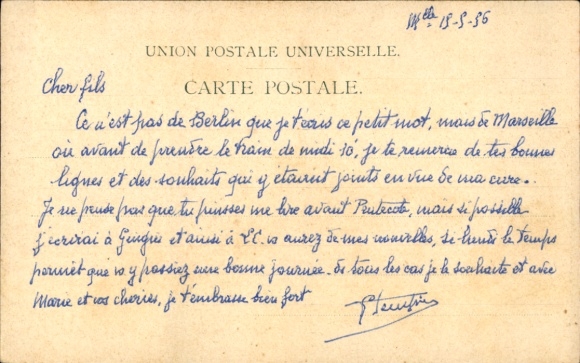 Mlle 15-5-36
UNION POSTALE UNIVERSELLE.
CARTE POSTALE.
Cher fils
Ce n'est pas de Berlin que je t'écris ce petit mot, mais de Marseille
où avant de prendre le train de midi 10', je te remercie de tes bonnes
lignes et des souhaits qui y étaient joints en vue de ma cure.
Je ne pense pas que tu puisses me lire avant Pentecote, mais si possible
j'écrirai à et ainsi à vs aurez de mes nouvelles, si le temps
permet que vs y passiez une bonne journée. ds tous les cas je le souhaite et avec
Marie et vos cheries, je t'embrasse bien fort